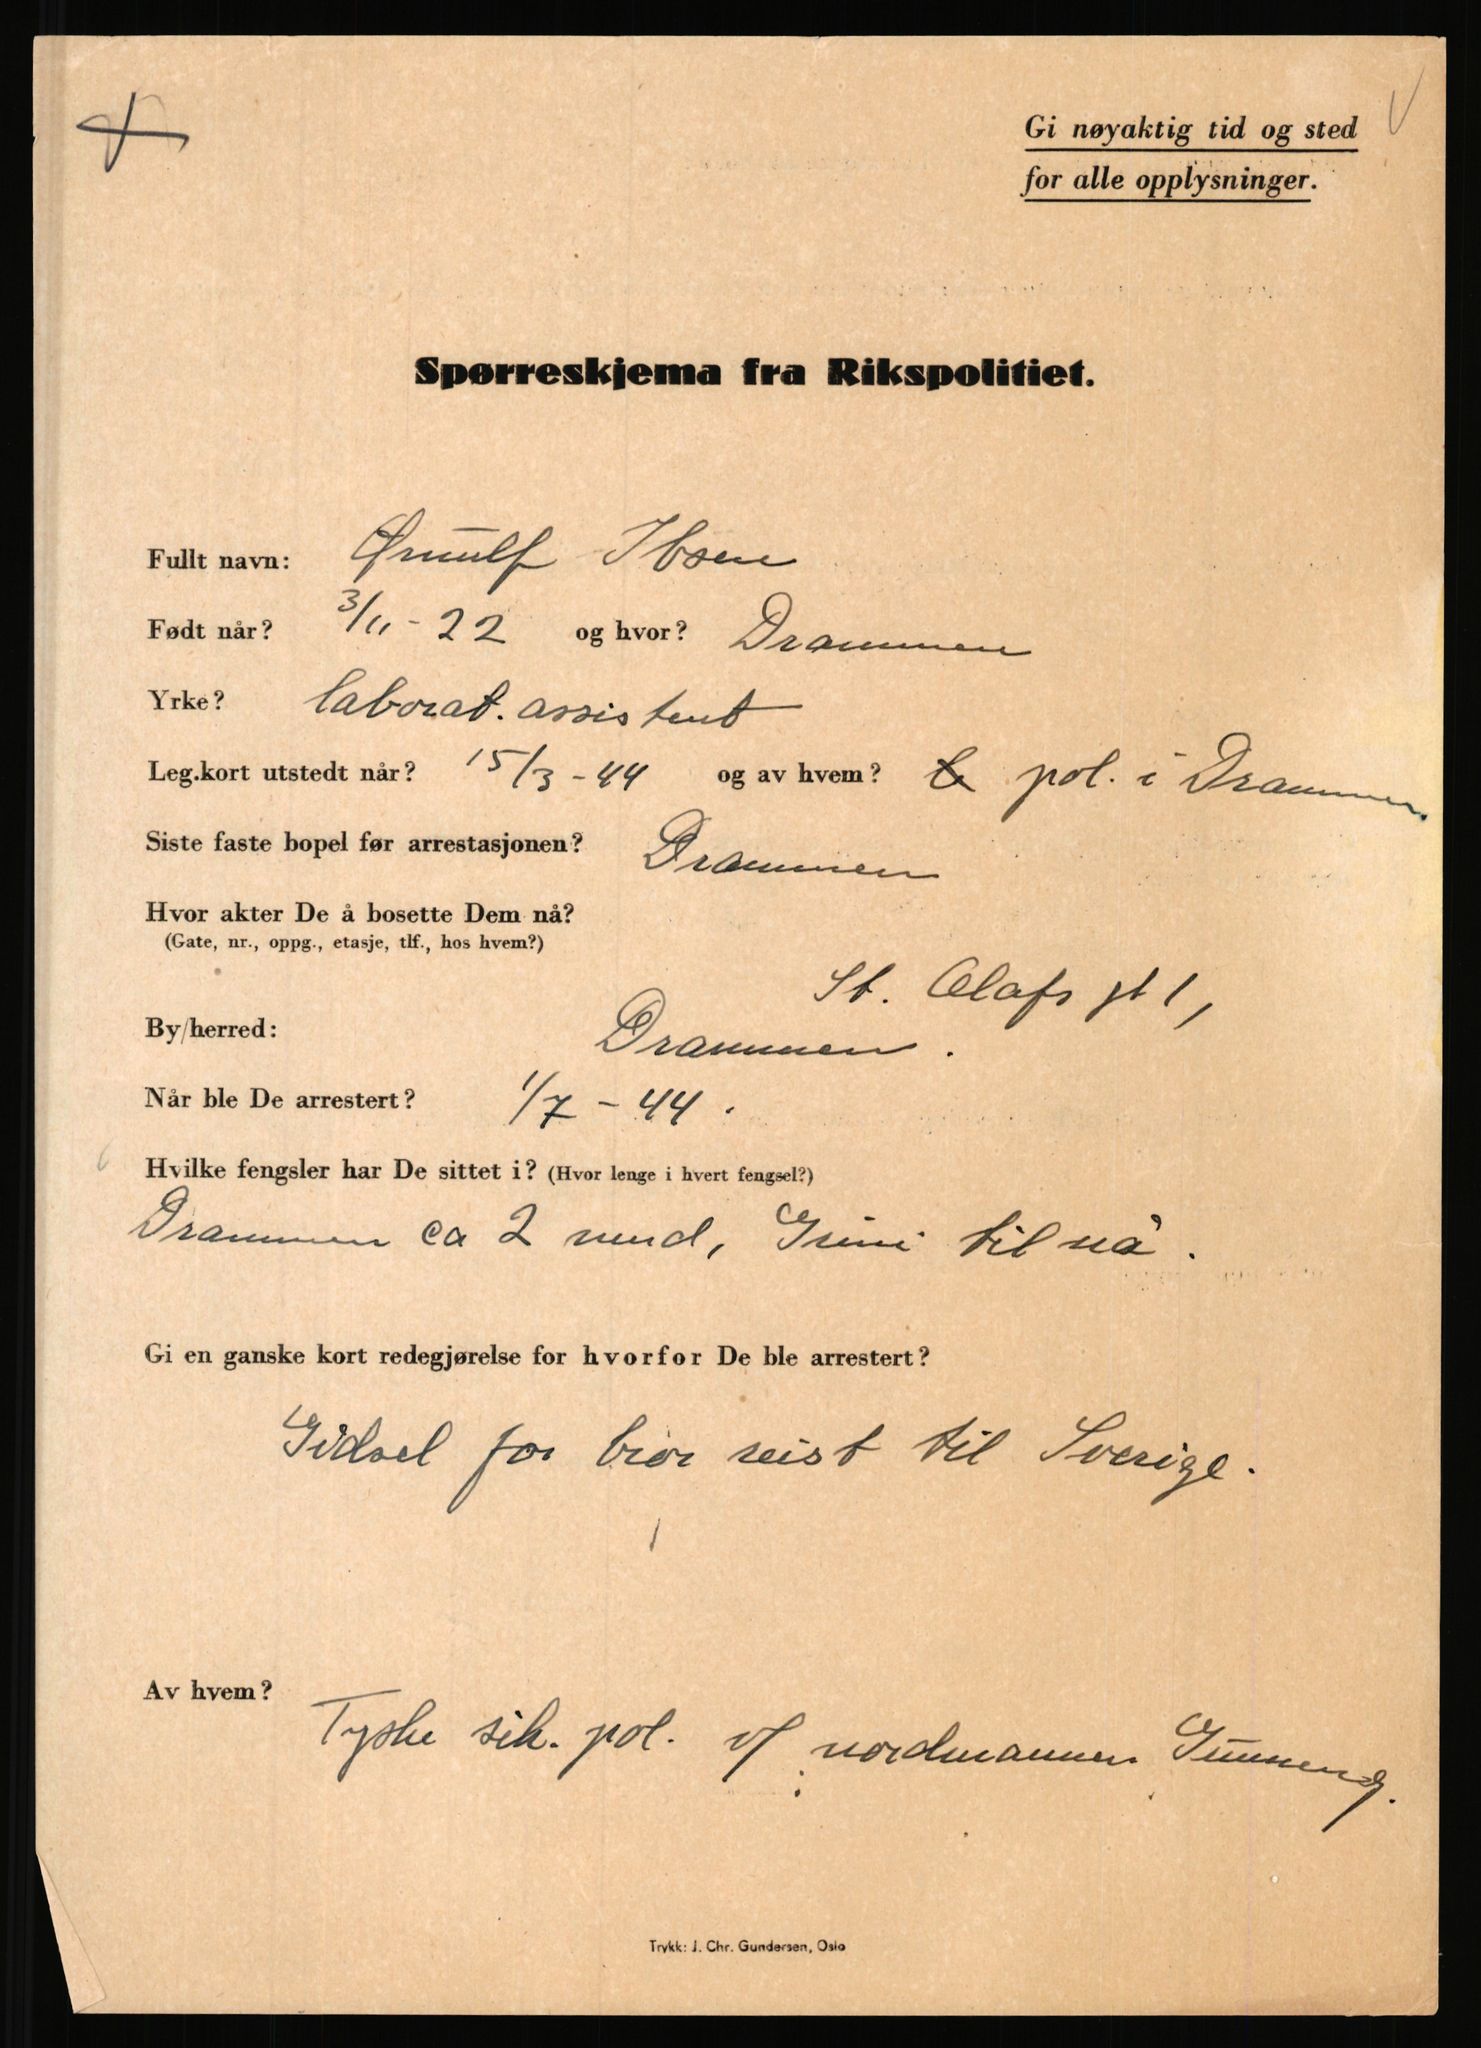 Gi nøyaktig tid og sted
for alle opplysninger.
Spørreskjema fra Rikspolitiet.
Fullt navn: Ørnulf Ibsen
Født når? 3/11-22 og hvor? Drammen
Yrke? laborat. assistent
Leg.kort utstedt når? 15/3-44 og av hvem? pol. i Drammen
Siste faste bopel før arrestasjonen? Drammen
Hvor akter De å bosette Dem nå?
(Gate, nr., oppg., etasje, tlf., hos hvem?)
St. Olafs gt 1,
By/herred: Drammen.
Når ble De arrestert? 1/7-44.
Hvilke fengsler har De sittet i? (Hvor lenge i hvert fengsel?)
Drammen ca 2 mnd, Grini til nå.
Gi en ganske kort redegjørelse for hvorfor De ble arrestert?
Gidsel for bror reist til Sverige.
Av hvem? Tyske sik. pol. v/ nordmannen
Trykk: J. Chr. Gundersen, Oslo